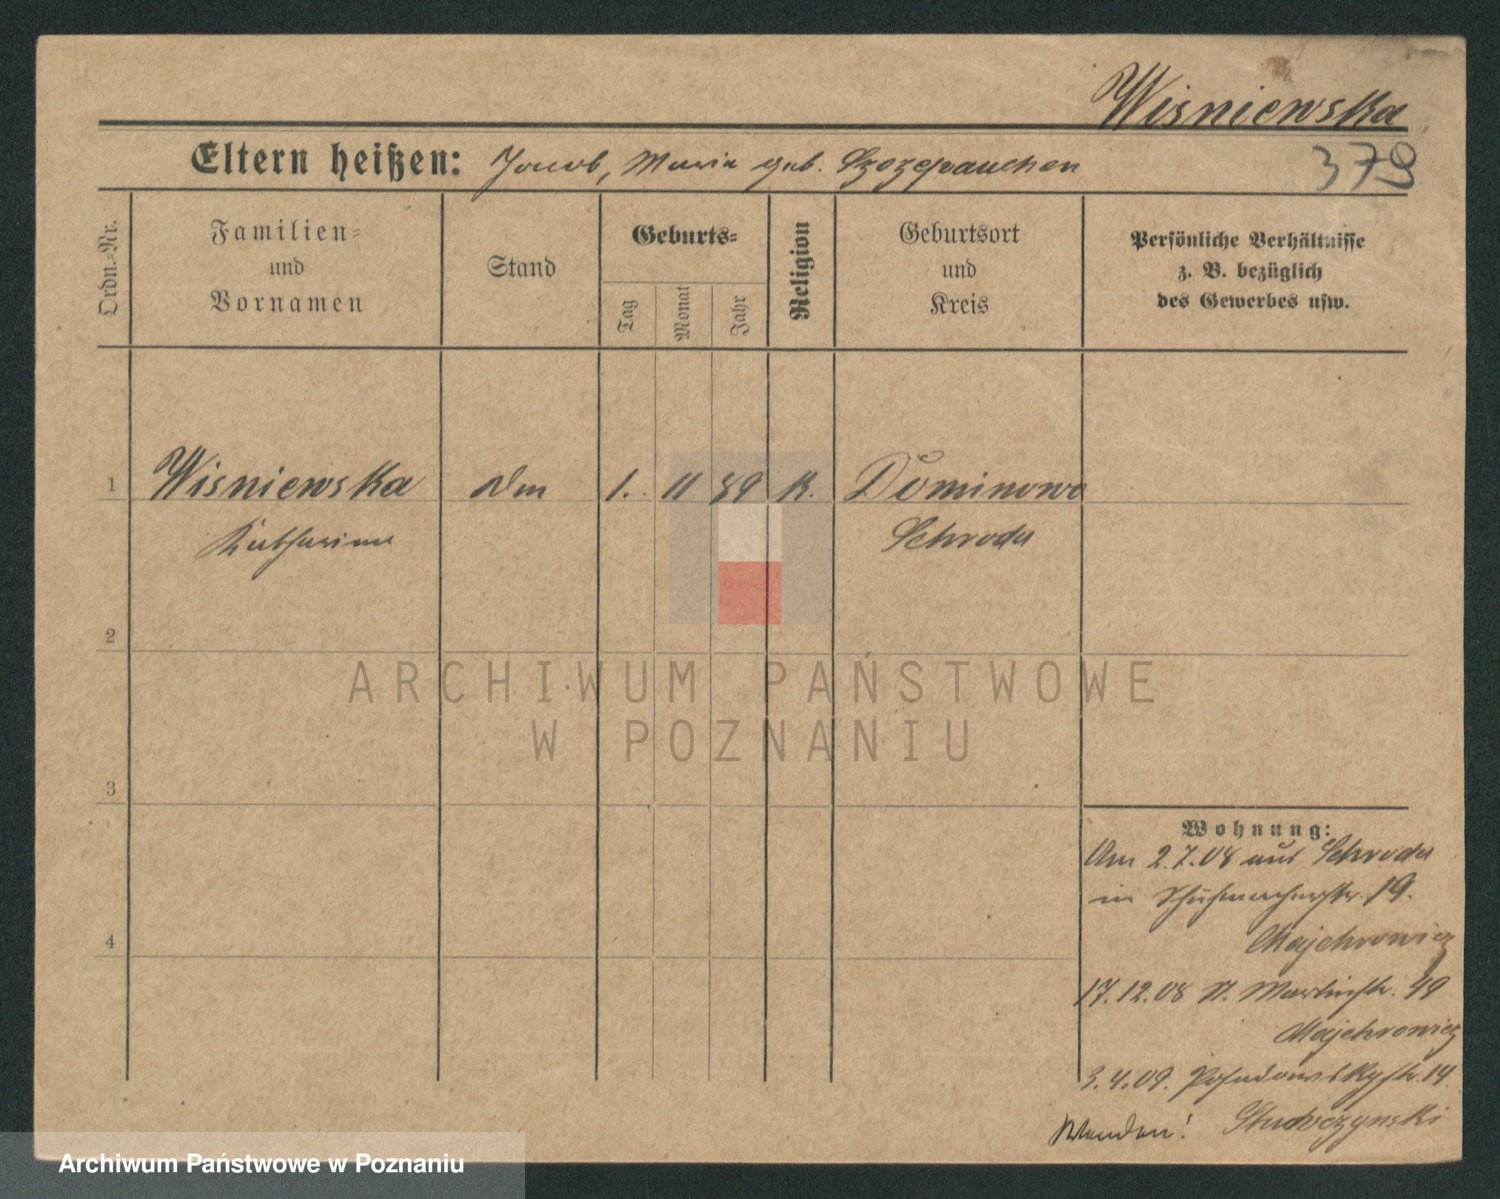 Wisniewska
379
Eltern heißen: Jacob, Maria geb.
Ordn.=Nr.
Familien=
und
Vornamen
Stand
Geburts=
Tag
Monat
Jahr
Religion
Geburtsort
und
Kreis
Persönliche Verhältnisse
z. B. bezüglich
des Gewerbes usw.
1 Wisniewska 1. 11 89 K. Dominowo
Katharina Schroda
2
3
4
Wohnung:
Am 2.7.08 aus Schroda
in Schuhmacherstr. 19.
Majchrowicz
17.12.08 St. Martinstr. 49
Majchrowicz
3.4.09. 14
Wenden!
ARCHIWUM PAŃSTWOWE
W POZNANIU
Archiwum Państwowe w Poznaniu